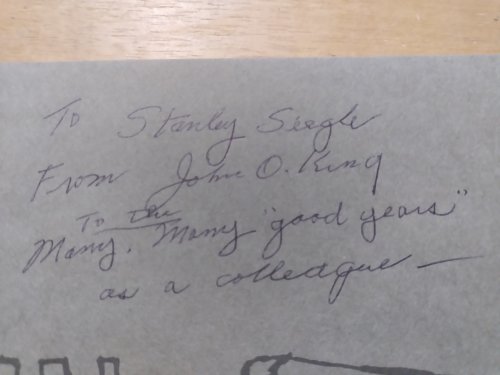 To Stanley Seegle
From John O. King
To the
Many, Many "good years"
as a colleague —